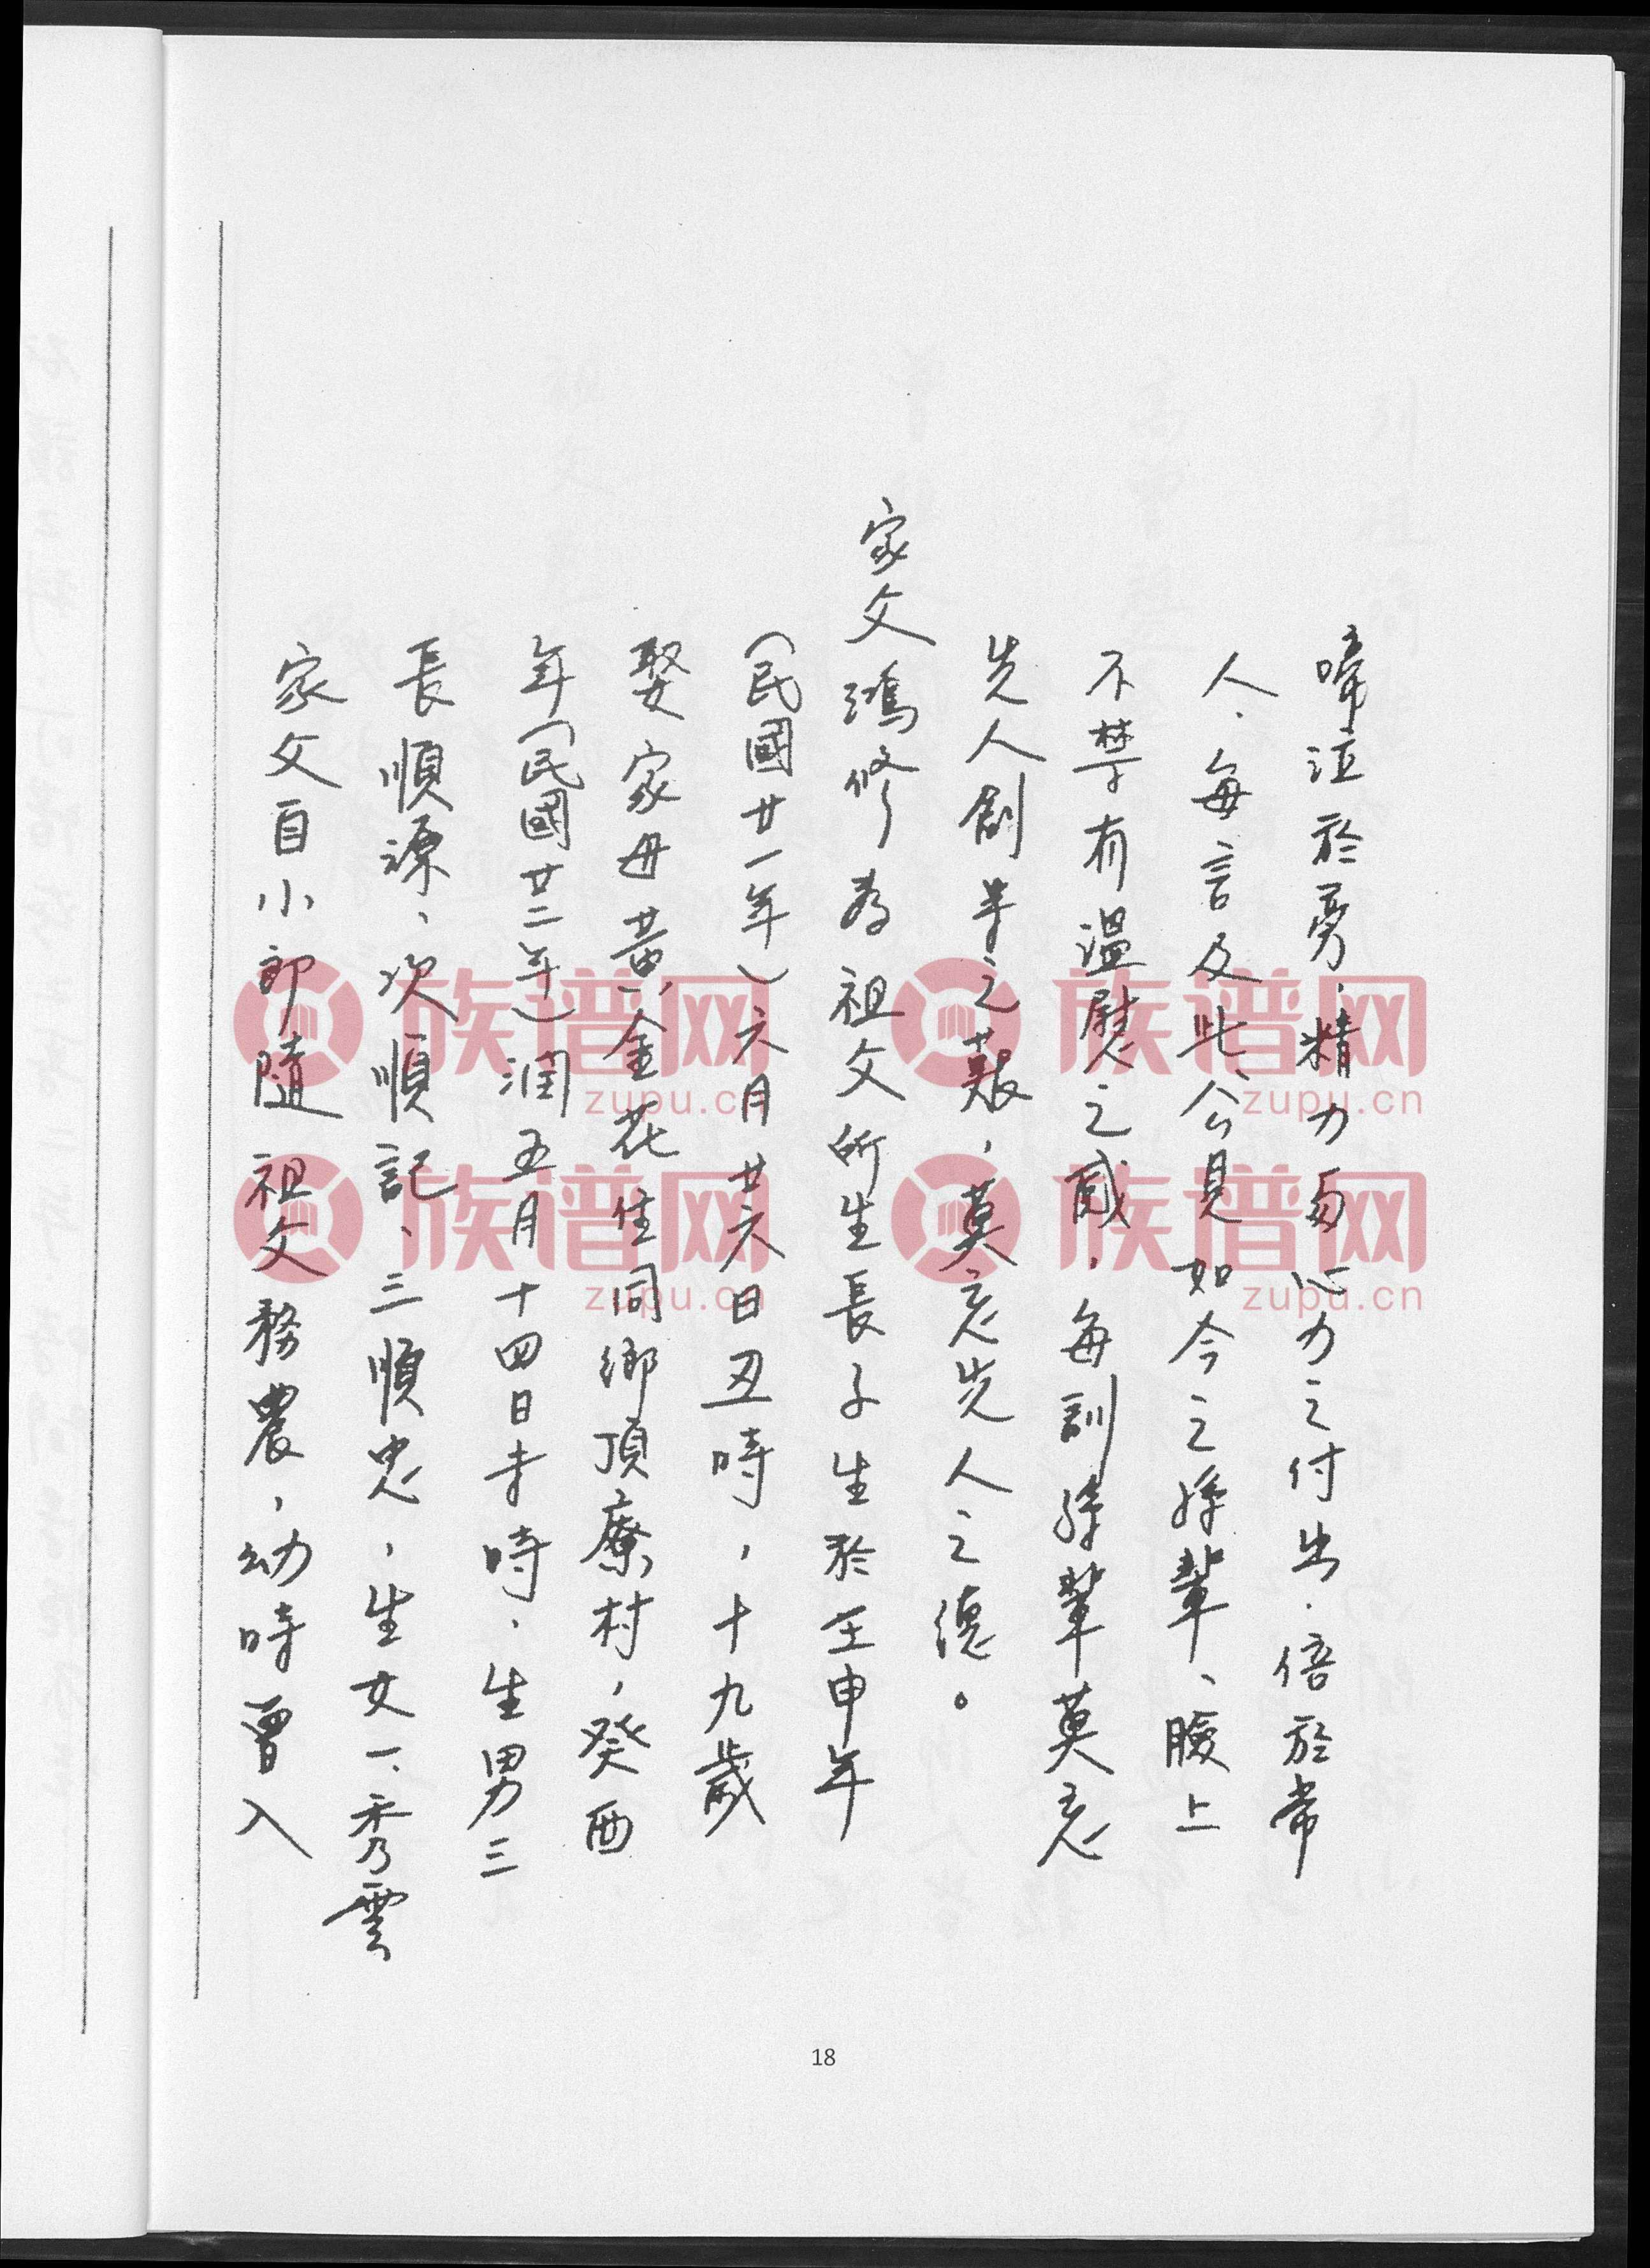 啼泣於旁，精力與心力之付出，倍於常
人，每言及此，公見如今之孫輩、臉上
不禁有溫慰之感，每訓孫輩莫忘
先人創半之艱，莫忘先人之德。
家父鴻修為祖父所生長子生於壬申年
（民國廿一年）六月廿六日丑時，十九歲
娶家母黃金花生同鄉頂寮村，癸酉
年（民國廿二年）潤五月十四日未時，生男三
長順源、次順記、三順忠，生女一、秀雲
家父自小即隨祖父務農，幼時曾入
18
族谱网
zupu.cn
族谱网
zupu.cn
族谱网
zupu.cn
族谱网
zupu.cn